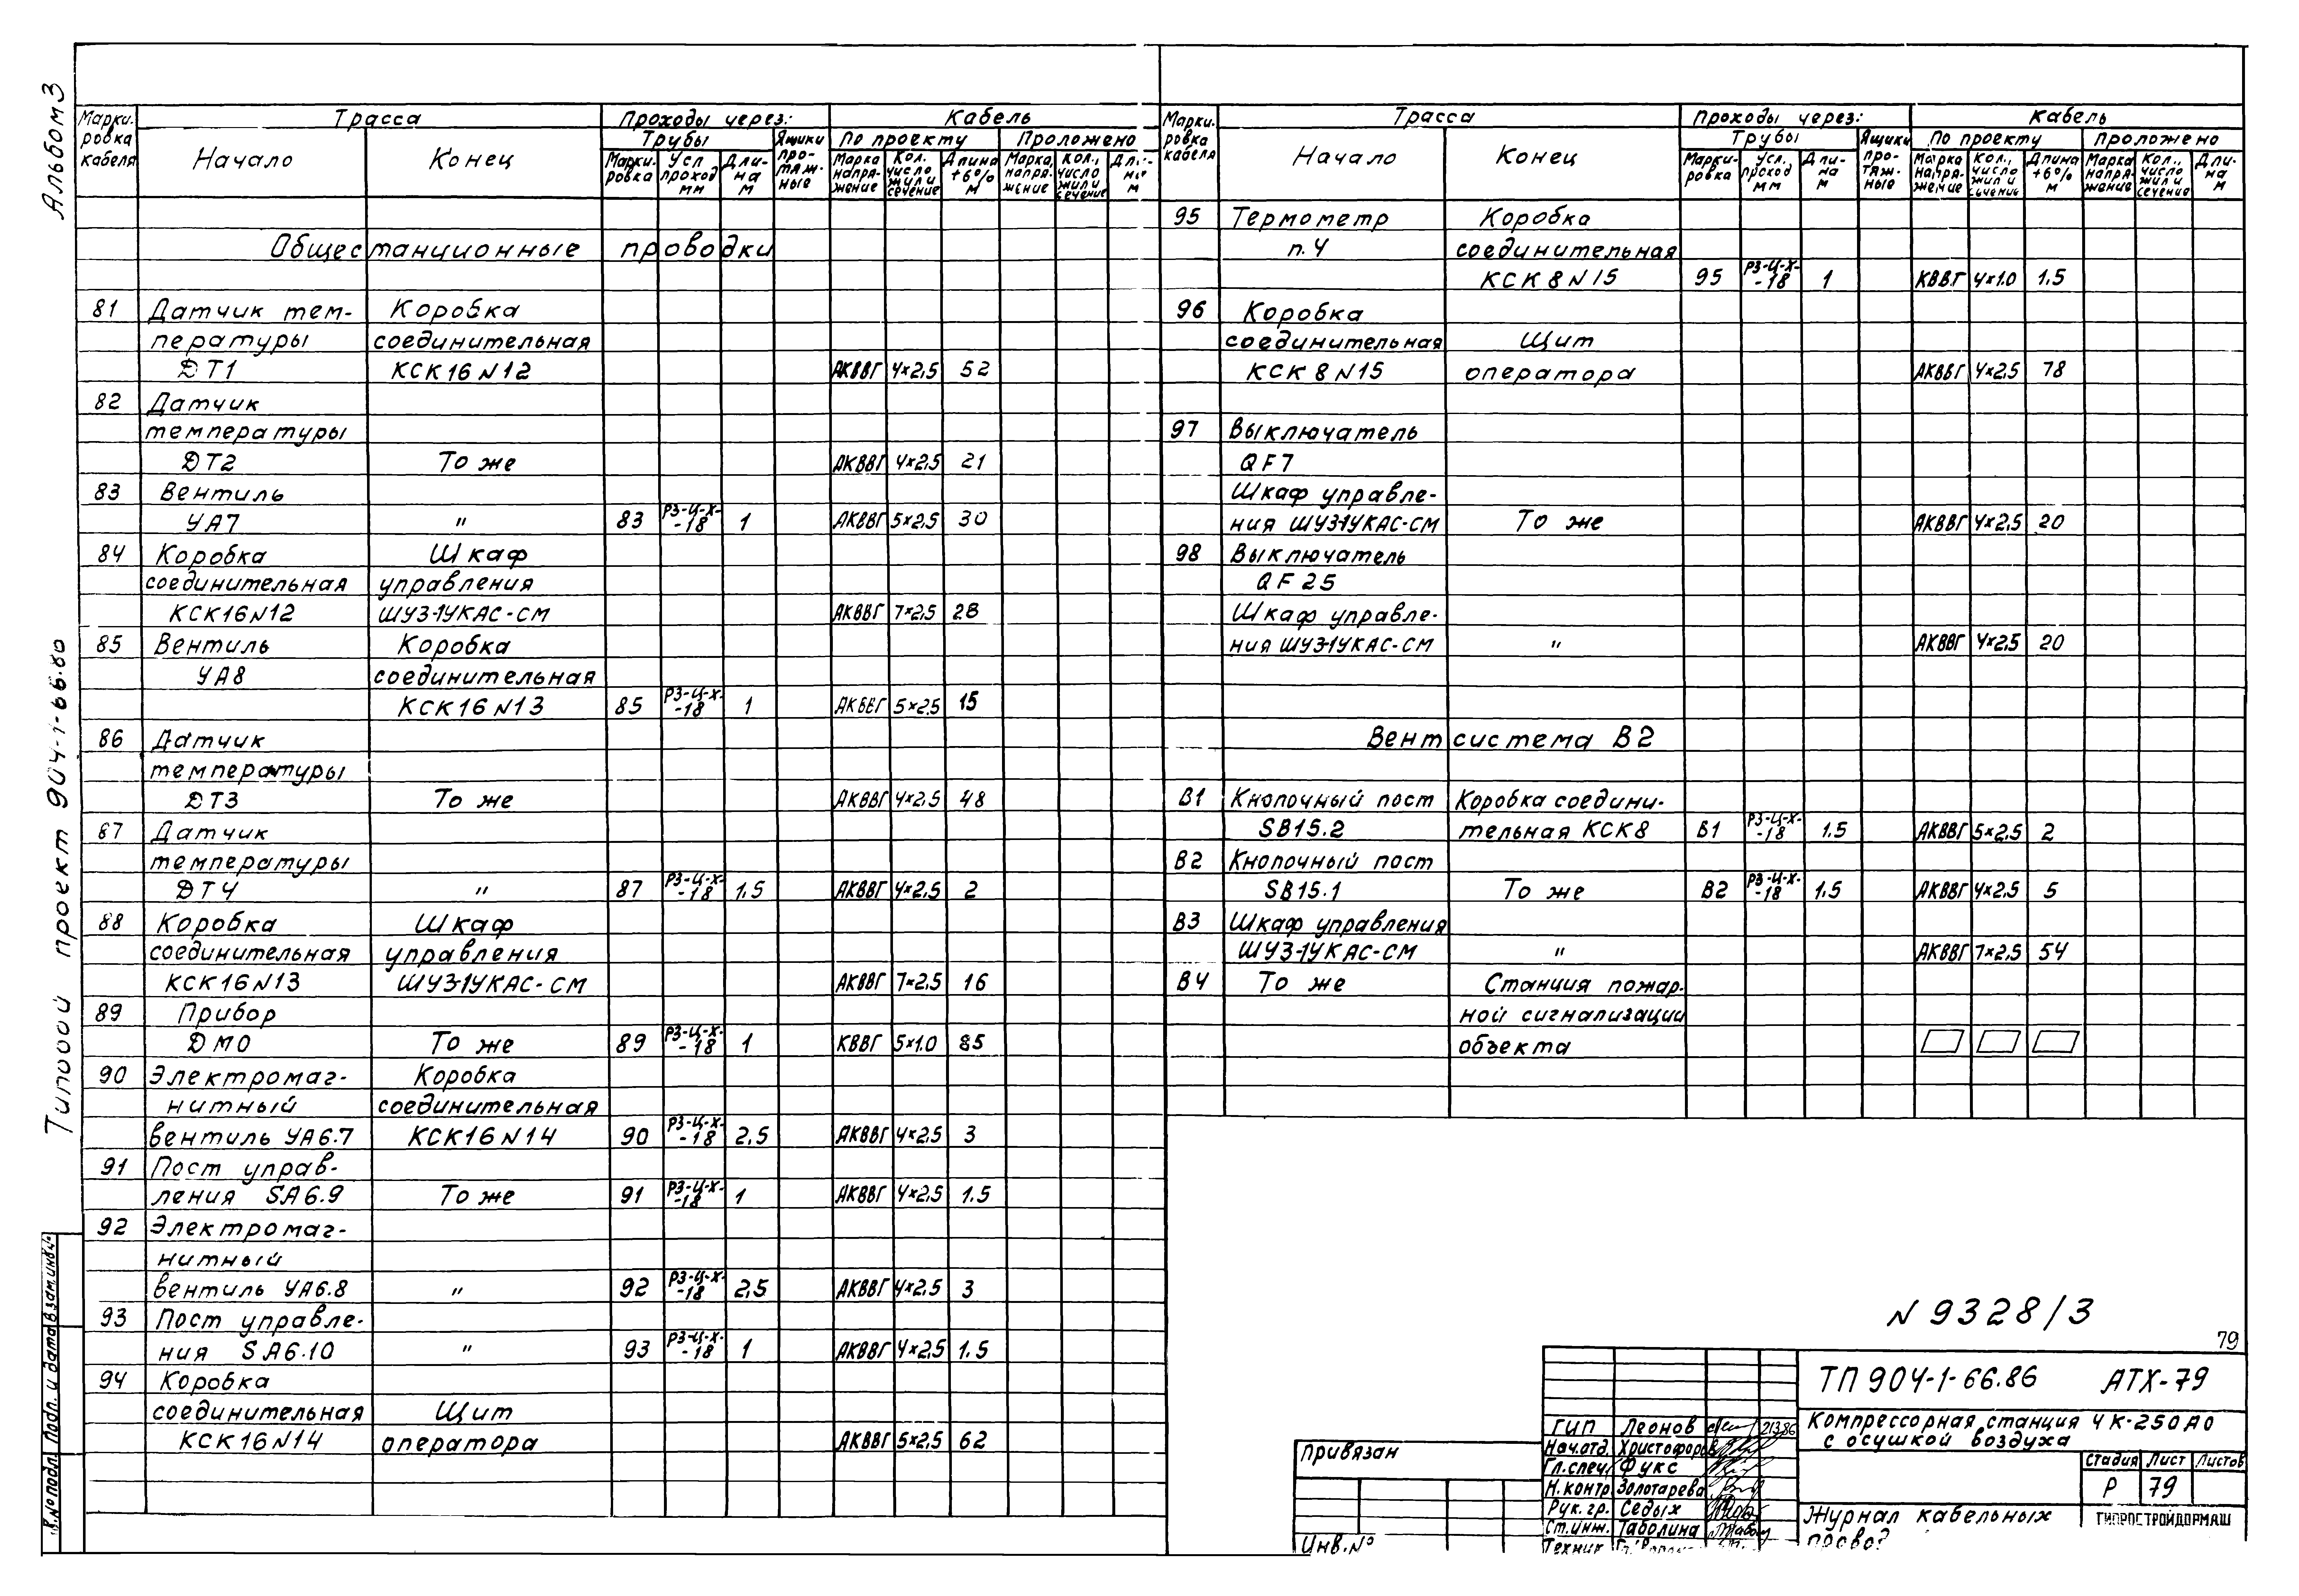 Альбом 3
Типовой проект 904-1-66.86
Марки-ровка кабеля | Трасса | Проходы через: | Кабель
Начало | Конец | Трубы | Ящики протяжные | По проекту | Проложено
Маркировка | Усл. проход мм | Длина м | Марка напряжение | Кол., число жил и сечение | Длина +6% м | Марка, напряжение | Кол., число жил и сечение | Длина м
Общестанционные проводки
81 Датчик тем- Коробка
пературы соединительная
ДТ1 КСК16 N12 АКВВГ 4×2,5 52
82 Датчик
температуры
ДТ2 То же АКВВГ 4×2,5 21
83 Вентиль
УА7 " 83 РЗ-Ц-Х-18 1 АКВВГ 5×2,5 30
84 Коробка Шкаф
соединительная управления
КСК16N12 ШУ3-1УКАС-СМ АКВВГ 7×2,5 28
85 Вентиль Коробка
УА8 соединительная
КСК16 N13 85 РЗ-Ц-Х-18 1 АКВВГ 5×2,5 15
86 Датчик
температуры
ДТ3 То же АКВВГ 4×2,5 48
87 Датчик
температуры
ДТ4 " 87 РЗ-Ц-Х-18 1,5 АКВВГ 4×2,5 2
88 Коробка Шкаф
соединительная управления
КСК16N13 ШУ3-1УКАС-СМ АКВВГ 7×2,5 16
89 Прибор
ДМ0 То же 89 РЗ-Ц-Х-18 1 КВВГ 5×1.0 85
90 Электромаг- Коробка
нитный соединительная
вентиль УА6.7 КСК16 N14 90 РЗ-Ц-Х-18 2,5 АКВВГ 4×2,5 3
91 Пост управ-
ления SA6.9 То же 91 РЗ-Ц-Х-18 1 АКВВГ 4×2,5 1.5
92 Электромаг-
нитный
вентиль УА6.8 " 92 РЗ-Ц-Х-18 2,5 АКВВГ 4×2,5 3
93 Пост управле-
ния SA6.10 " 93 РЗ-Ц-Х-18 1 АКВВГ 4×2,5 1.5
94 Коробка
соединительная Щит
КСК16N14 оператора АКВВГ 5×2,5 62
Марки-ровка кабеля | Трасса | Проходы через: | Кабель
Начало | Конец | Трубы | Ящики протяжные | По проекту | Проложено
Марки-ровка | Усл., проход мм | Длина м | Марка напряжение | Кол., число жил и сечение | Длина +6% м | Марка напряжение | Кол., число жил и сечение | Длина м
95 Термометр Коробка
п.4 соединительная
КСК 8 N15 95 РЗ-Ц-Х-18 1 КВВГ 4×1.0 1.5
96 Коробка
соединительная Щит
КСК 8 N15 оператора АКВВГ 4×2,5 78
97 Выключатель
QF7
Шкаф управле-
ния ШУ3-1УКАС-СМ То же АКВВГ 4×2,5 20
98 Выключатель
QF25
Шкаф управле-
ния ШУ3-1УКАС-СМ " АКВВГ 4×2,5 20
Вентсистема В2
В1 Кнопочный пост Коробка соедини-
SB15.2 тельная КСК8 В1 РЗ-Ц-Х-18 1.5 АКВВГ 5×2,5 2
В2 Кнопочный пост
SB15.1 То же В2 РЗ-Ц-Х-18 1.5 АКВВГ 4×2,5 5
В3 Шкаф управления
ШУ3-1УКАС-СМ " АКВВГ 7×2,5 54
В4 То же Станция пожар-
ной сигнализации
объекта
N 9328/3
79
ТП 904-1-66.86 АТХ-79
Компрессорная станция 4К-250А0
с осушкой воздуха
Стадия Лист Листов
Р 79
Журнал кабельных
провод
ГИПРОСТРОЙДОРМАШ
ГИП Леонов 21386
Нач.отд. Христофоров
Гл.спец. Фукс
Н.контр. Золотарева
Рук. гр. Седых
Ст.инж. Таболина
Техник
Привязан
Инв.№
Взам.инв.№
Подп. и дата
№ подл.